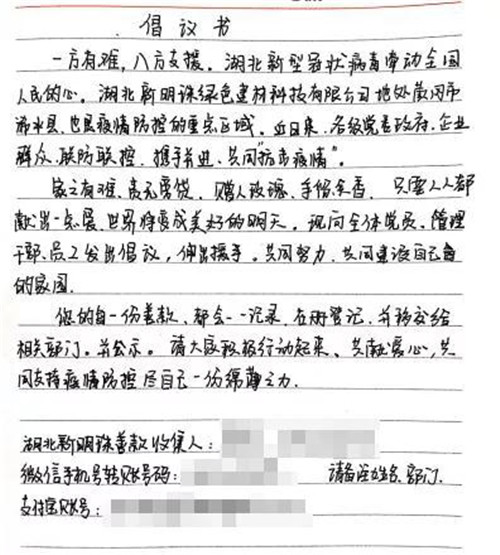 倡议书
一方有难,八方支援。湖北新型冠状病毒牵动全国
人民的心。湖北新明珠绿色建材科技有限公司地处黄冈市
浠水县,也是疫情防控的重点区域。近日来,各级党委政府、企业
群众,联防联控,携手并进,共同"抗击疫情"。
家之有难,责无旁贷,赠人玫瑰、手留余香。只需人人都
献出一点爱,世界将变成美好的明天。现向全体党员、管理
干部、员工发出倡议,伸出援手。共同努力,共同建设自己
的家园。
您的每一份善款,都会一一记录,在册登记,并移交给
相关部门。并公示。请大家积极行动起来、共献爱心,共
同支持疫情防控尽自己一份绵薄之力。
湖北新明珠善款收集人:
微信手机号转账号码: 请备注姓名、部门.
支付宝账号: